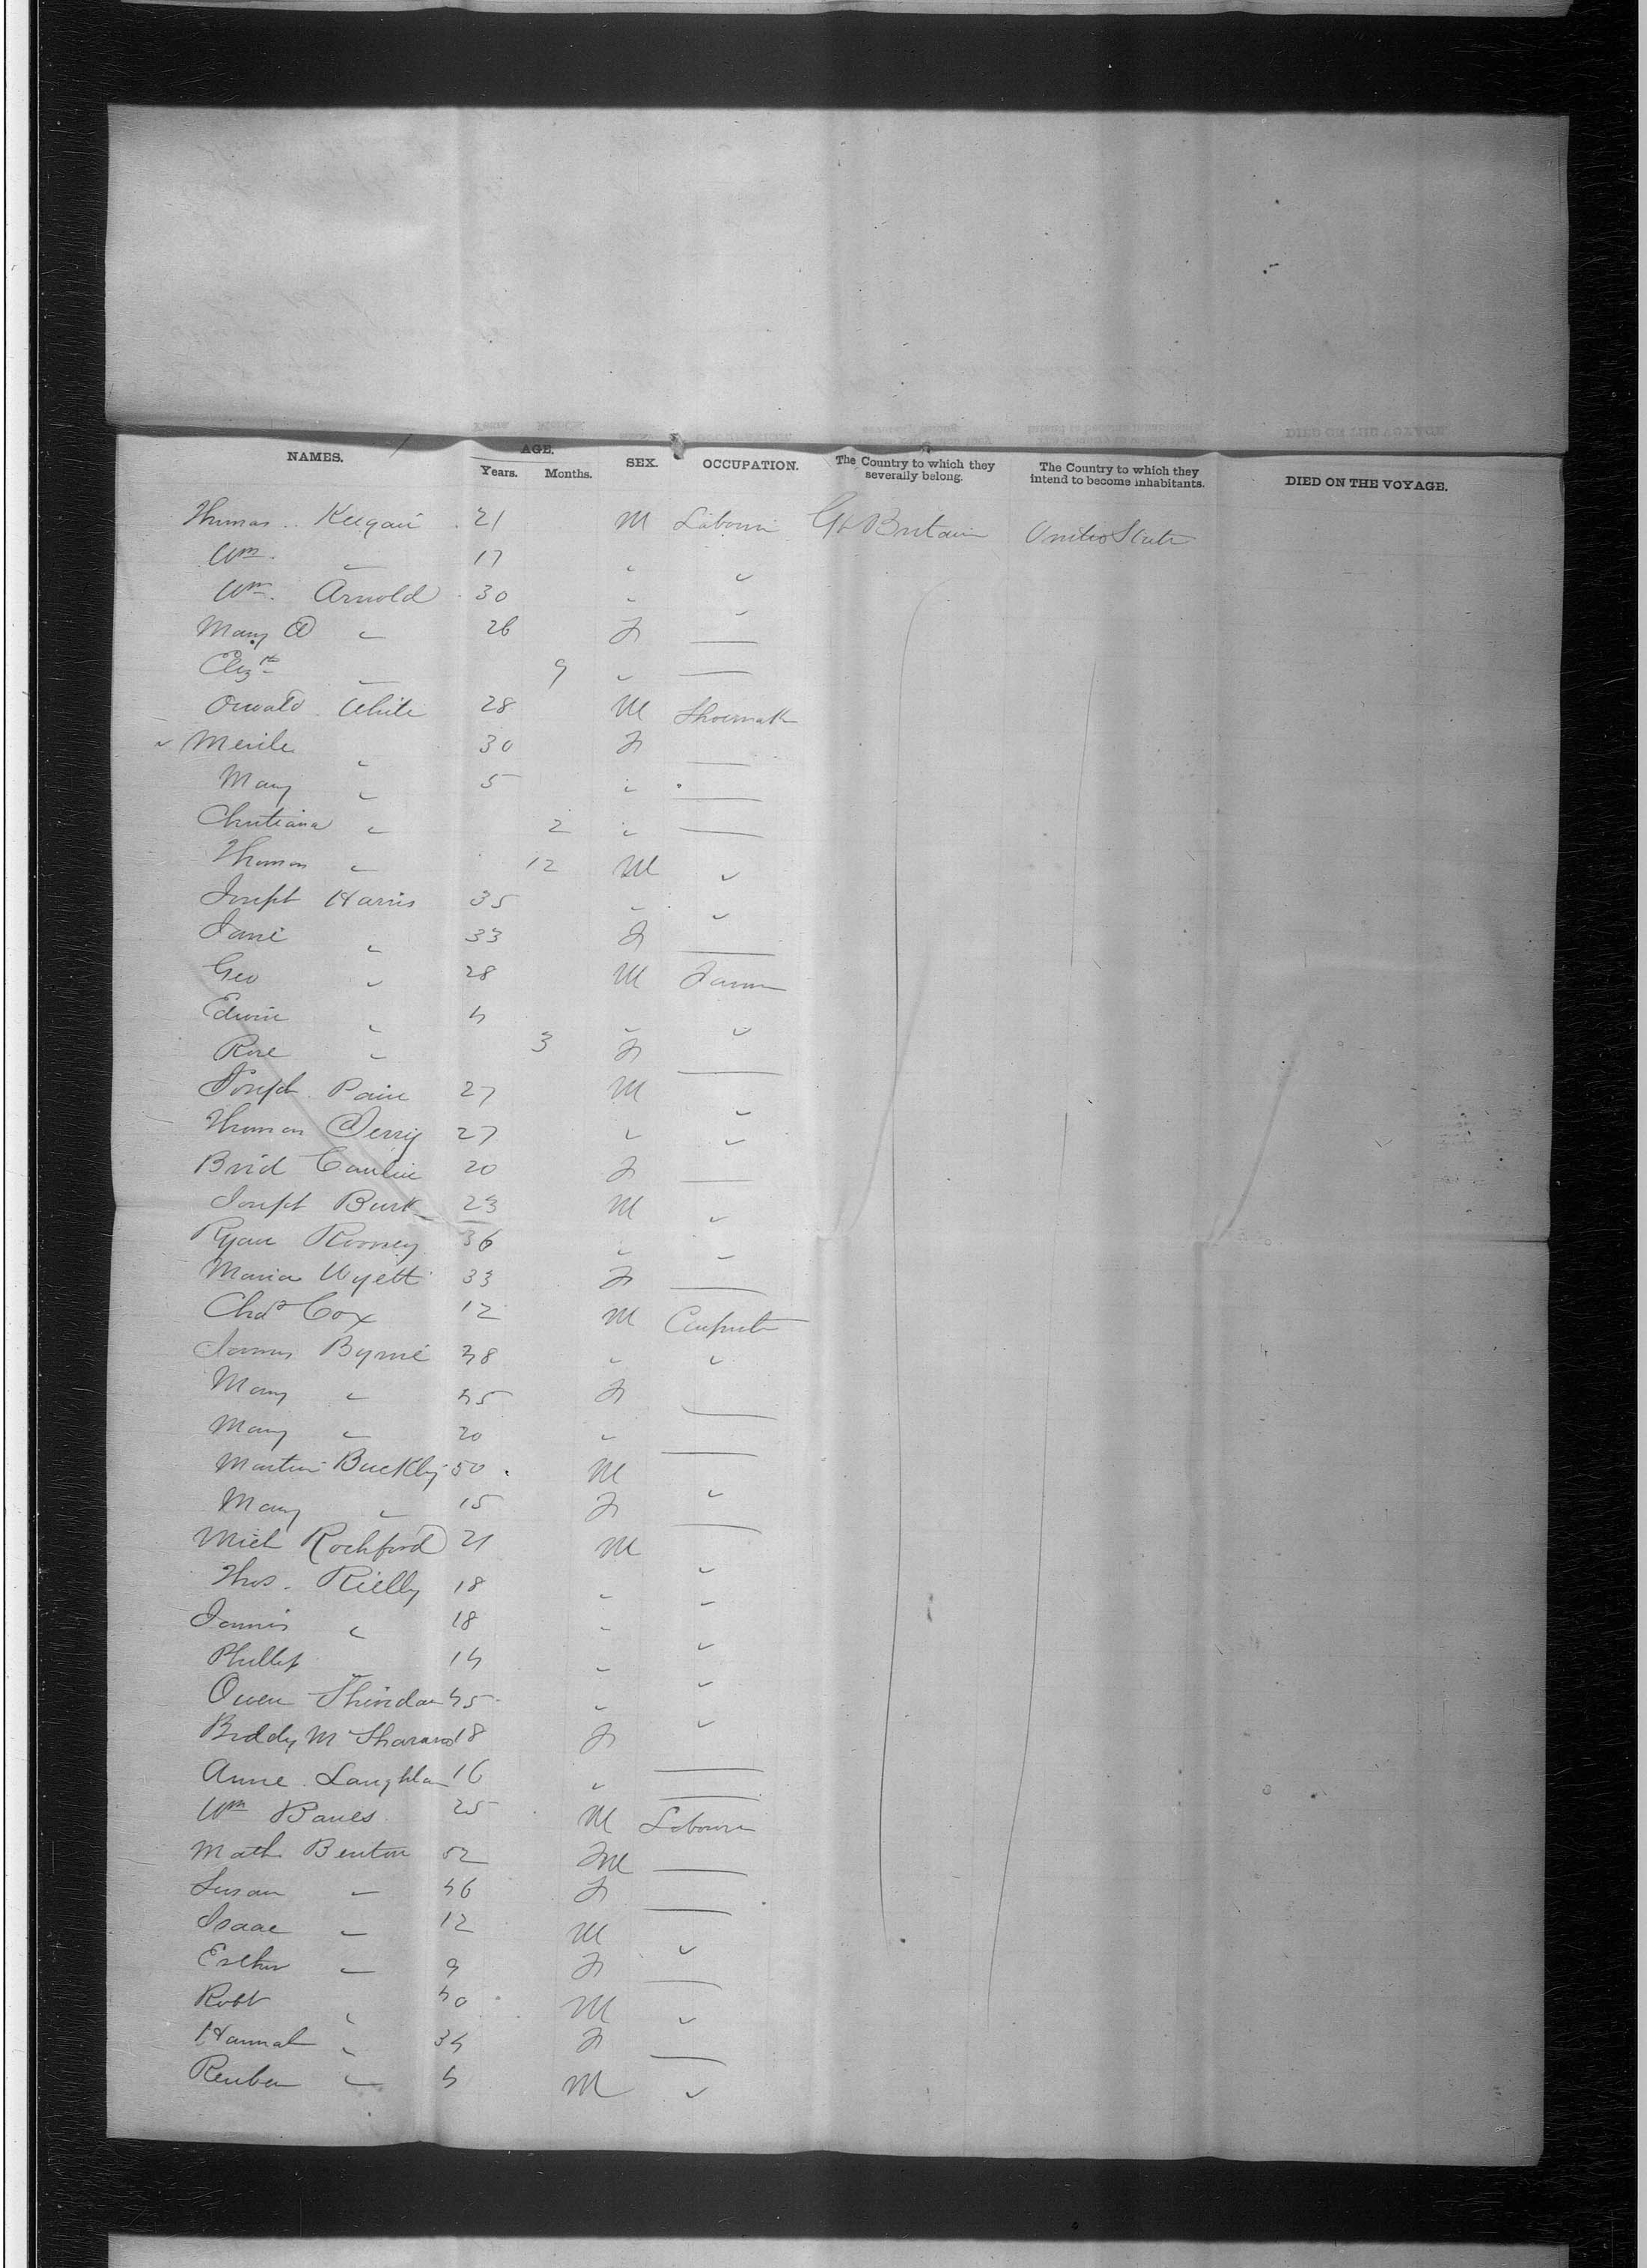 NAMES. AGE. SEX. OCCUPATION. The Country to which they severally belong. The Country to which they intend to become inhabitants. DIED ON THE VOYAGE.
Years. Months.
Thomas Keegan 21 M Labourer Gt Britain United State
Wm. " 17 " "
Wm. Arnold 30 " "
Mary A " 26 F —
Elizth " 9 " —
Oswald White 28 M Shoemak
" 30 F —
Mary " 5 " —
Christiana " 2 " —
Thomas " 12 M "
Joseph Harris 35 " "
Jane " 33 F —
Geo " 28 M Farmer
Edwin " 4 " "
Rose " 3 F —
Joseph Pain 27 M "
Thomas Derry 27 " "
Brid 20 F —
Joseph Burk 23 M "
Ryan Rooney 36 " "
Maria Wyett 33 F —
Chas Cox 12 M Carpenter
James Byrne 38 " "
Mary " 45 F —
Mary " 20 " —
Martin Buckley 50 M "
Mary " 15 F —
Mich Rochford 21 M "
Thos. Rielly 18 " "
James " 18 " "
Phillip 14 " "
Owen Sheridan 45 " "
Biddy 18 F —
Anne Laughlan 16 " —
Wm Banes 25 M Labourer
Math Benton 52 M —
Susan " 46 F —
Isaac " 12 M "
Esther " 9 F —
Robt " 40 M "
Hannah " 34 F —
Reuben " 4 M "